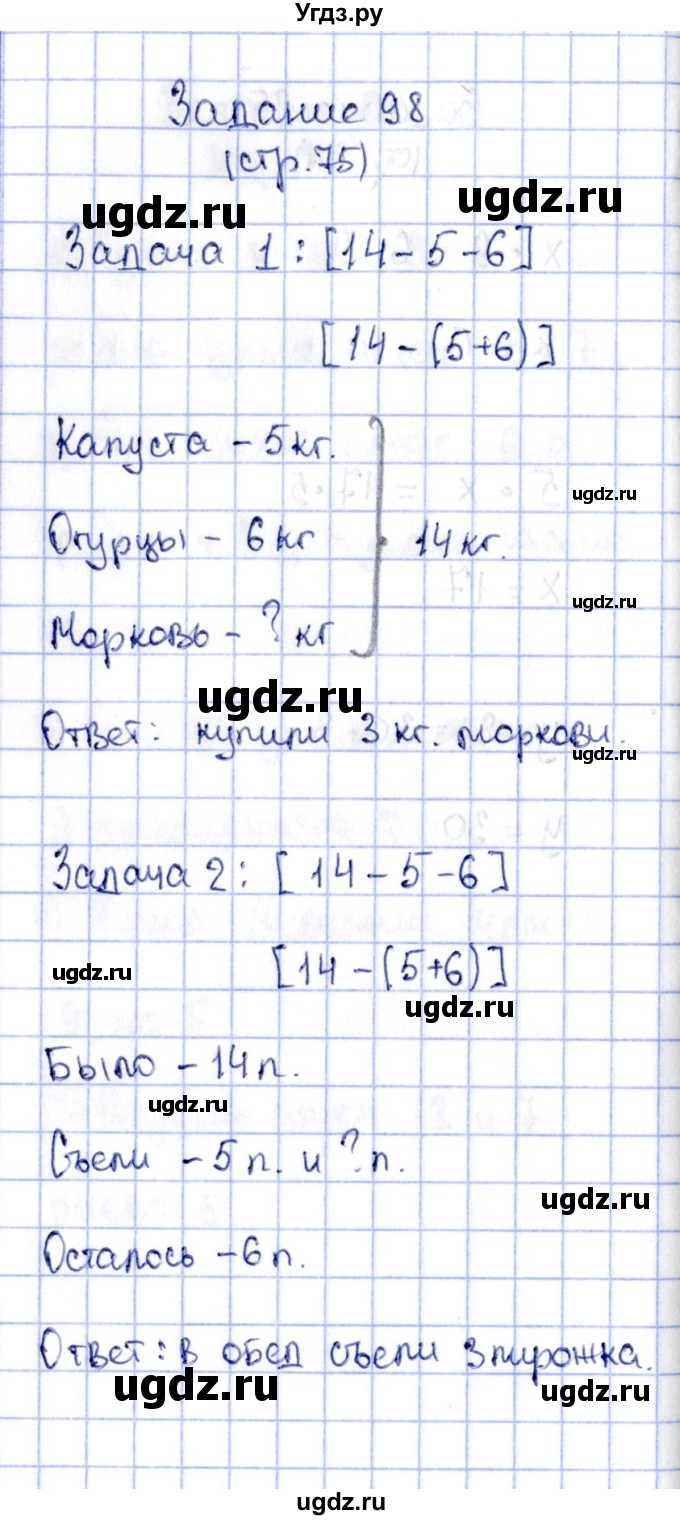 Угдз.ру
Задание 98
(стр.75)
ugdz.ru
ugdz.ru
Задача 1: [14-5-6]
[14-(5+6)]
Капуста - 5кг.
ugdz.ru
Огурцы - 6кг
14кг.
ugdz.ru
Морковь - ? кг
ugdz.ru
Ответ: купили 3 кг. моркови.
ugdz.ru
Задача 2: [14-5-6]
[14-(5+6)]
ugdz.ru
ugdz.ru
Было - 14п.
ugdz.ru
Съели - 5п. и ?п.
ugdz.ru
Осталось - 6п.
Ответ: в обед съели 3пирожка.
ugdz.ru
ugdz.ru
ugdz.ru